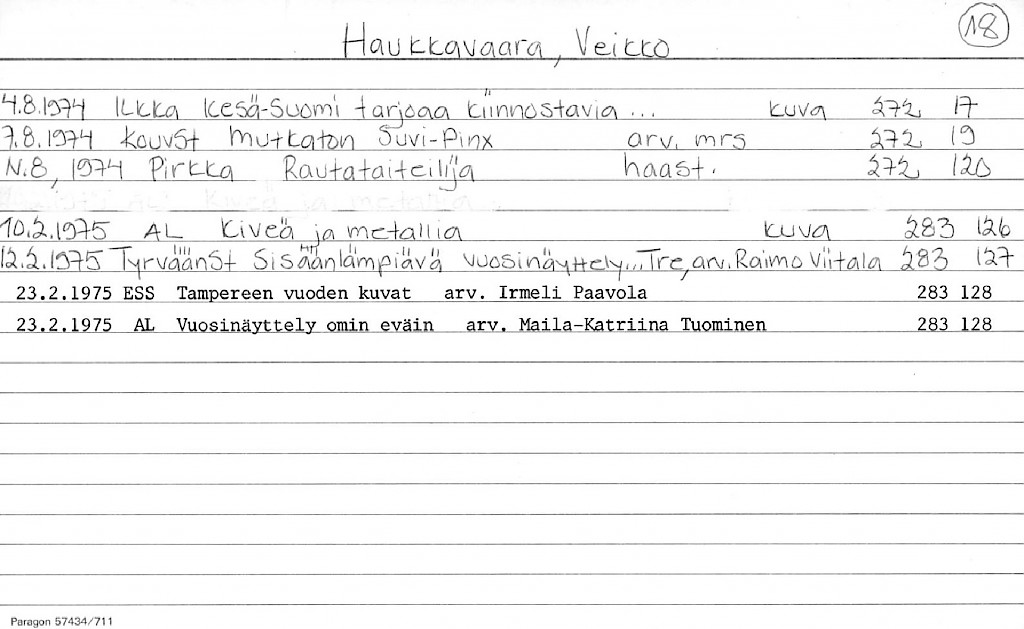 18
Haukkavaara, Veikko
4.8.1974 Ilkka Kesä-Suomi tarjoaa kiinnostavia ... kuva 272 17
7.8.1974 KouvSt Mutkaton Suvi-Pinx arv. mrs 272 19
N:8, 1974 Pirkka Rautataiteilija haast. 272 120
10.2.1975 AL Kiveä ja metallia kuva 283 126
12.2.1975 TyrväänSt Sisäänlämpiävä vuosinäyttely... Tre, arv. Raimo Viitala 283 127
23.2.1975 ESS Tampereen vuoden kuvat arv. Irmeli Paavola 283 128
23.2.1975 AL Vuosinäyttely omin eväin arv. Maila-Katriina Tuominen 283 128
Paragon 57434/711